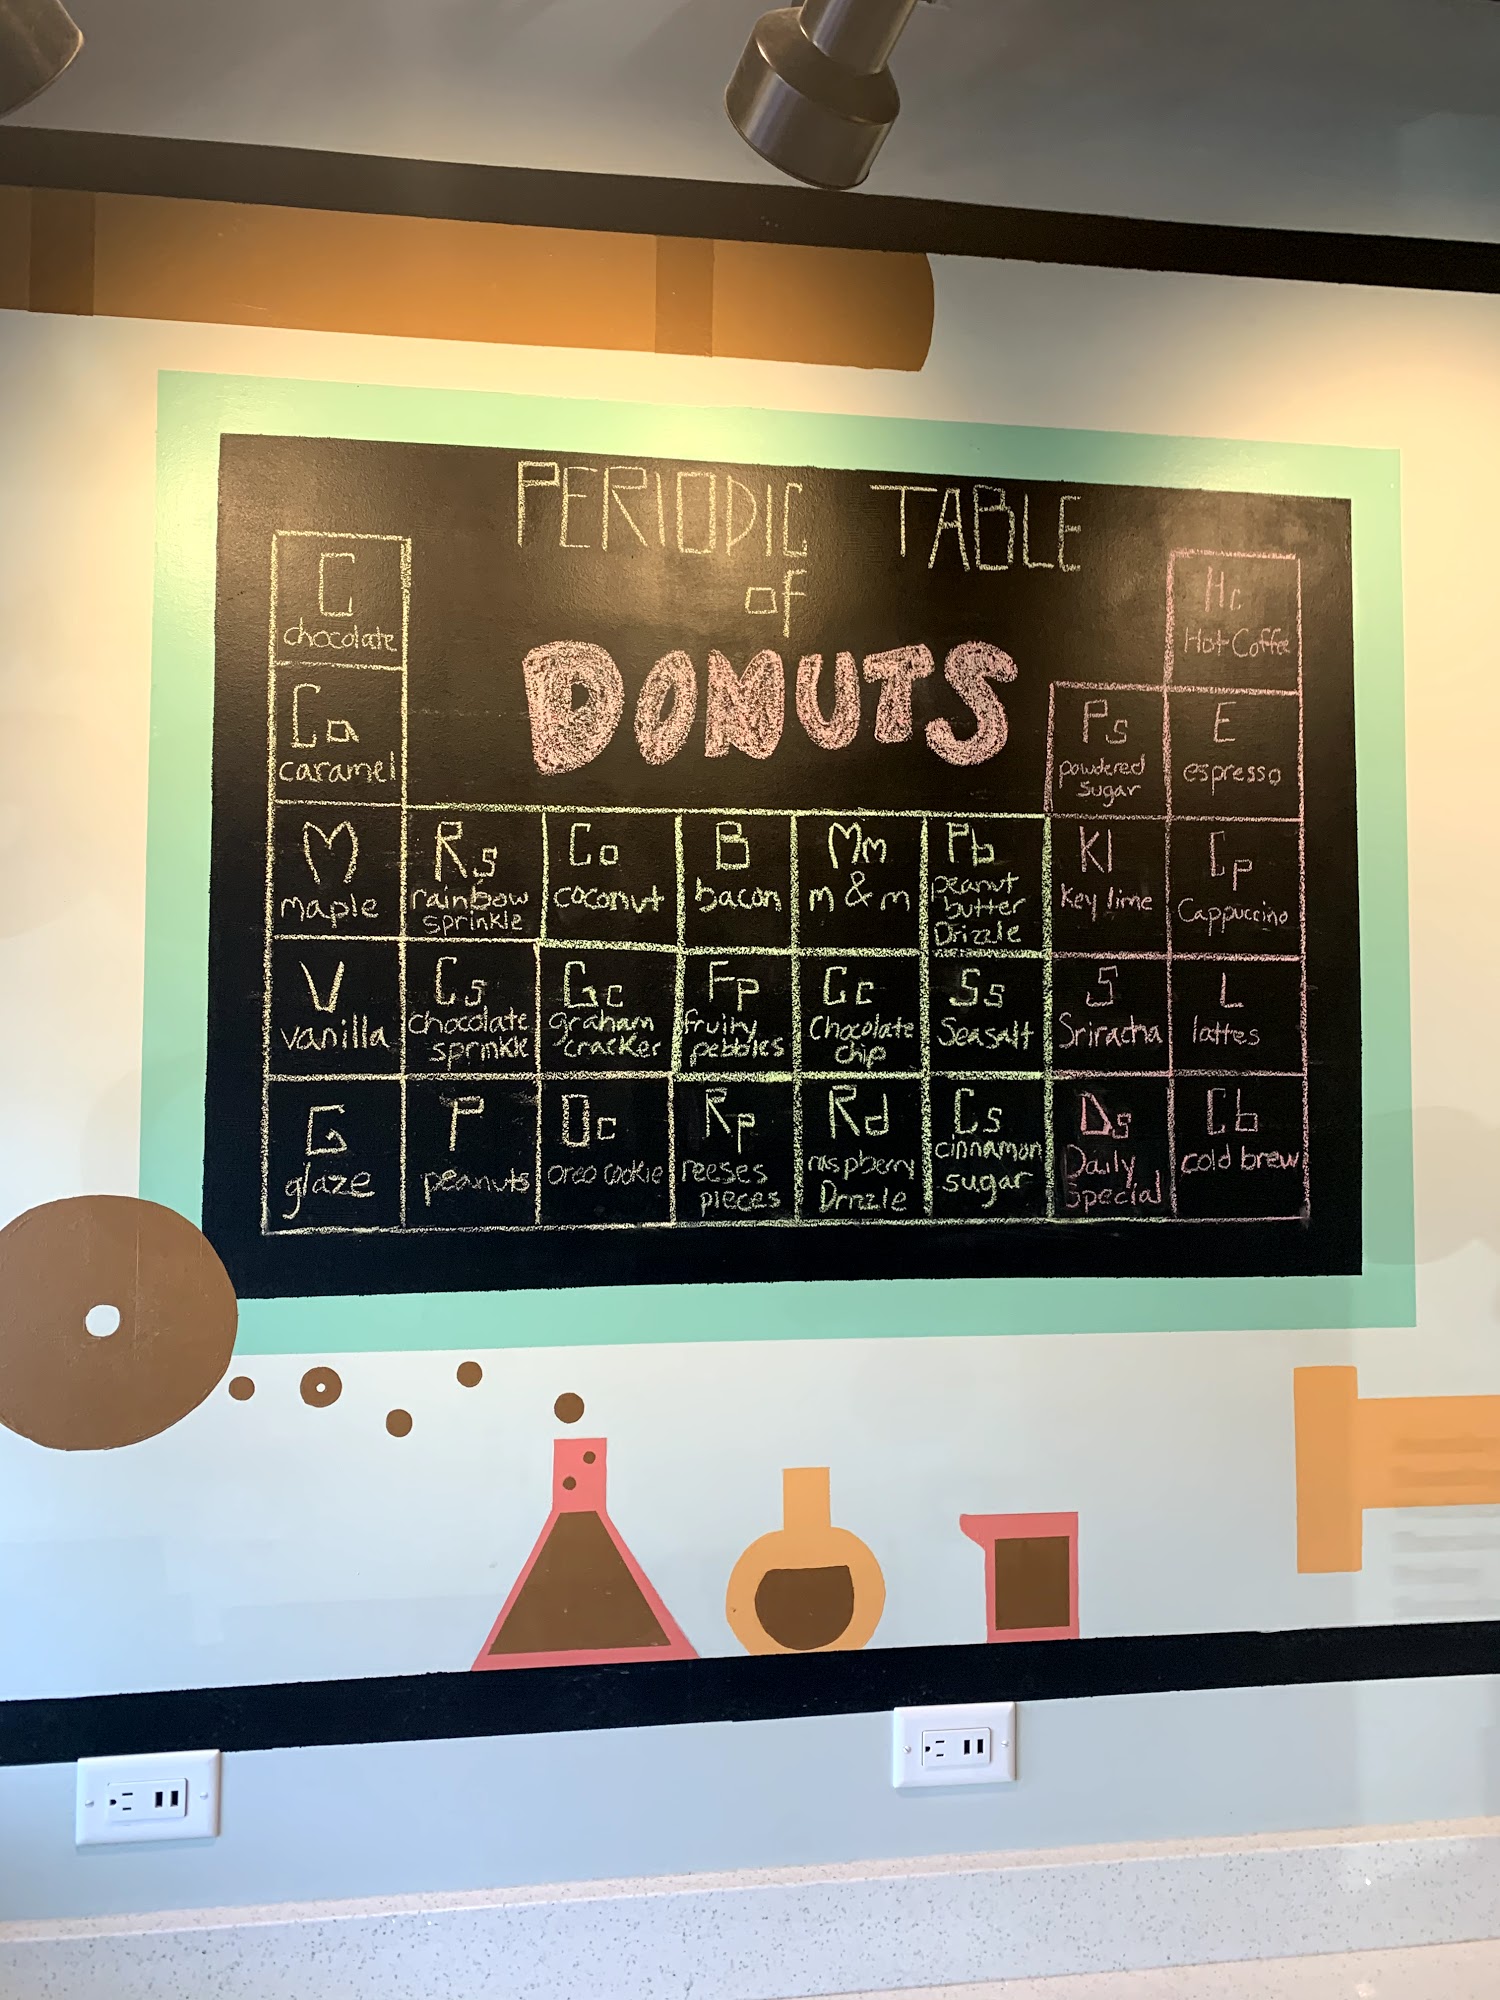 PERIODIC TABLE
of
DONUTS
C
chocolate
Hc
Hot Coffee
Ca
caramel
Ps
powdered
sugar
E
espresso
M
maple
Rs
rainbow
sprinkle
Co
coconut
B
bacon
Mm
m & m
Pb
peanut
butter
Drizzle
Kl
Key lime
Cp
Cappuccino
V
vanilla
Cs
chocolate
sprinkle
Gc
graham
cracker
Fp
fruity
pebbles
Cc
Chocolate
chip
Ss
Seasalt
S
Sriracha
L
lattes
G
glaze
P
peanuts
Oc
oreo cookie
Rp
reeses
pieces
Rd
raspberry
Drizzle
Cs
cinnamon
sugar
Ds
Daily
Special
Cb
cold brew